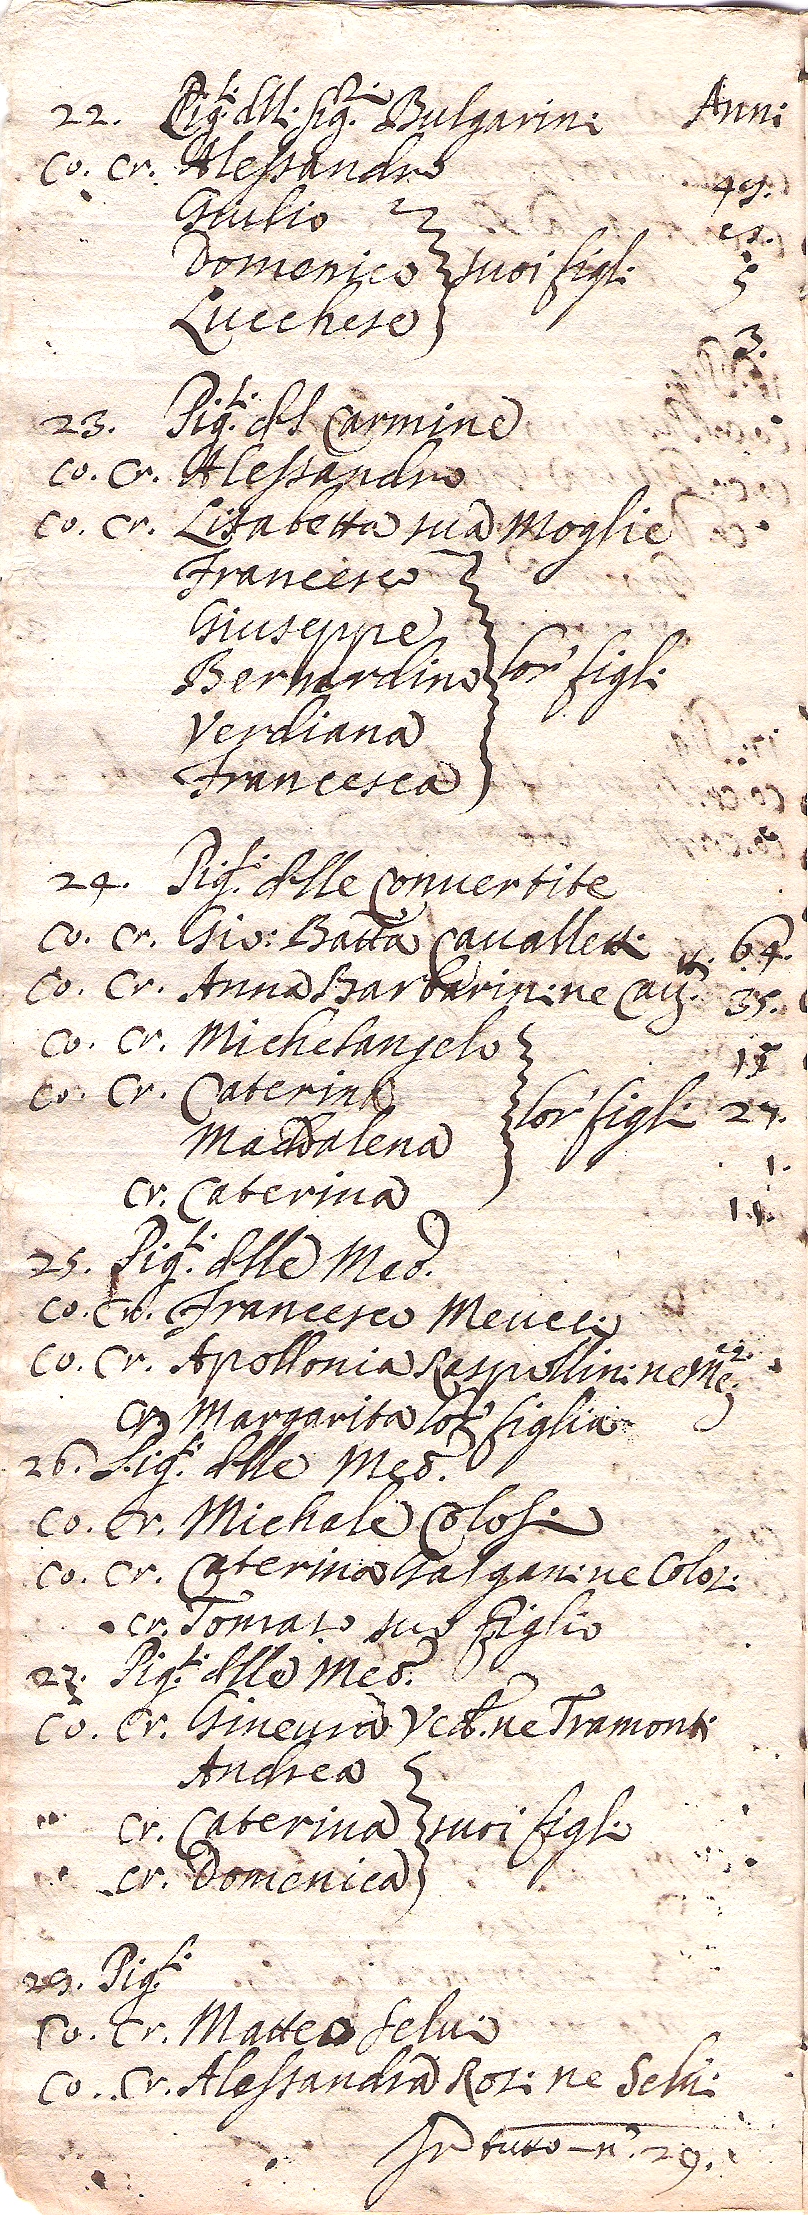 22. Pig.li dell. Sig.r Bulgarini Anni
co. cr. Alessandro 49.
Giulio
Domenico suoi figli 5
Lucchese 3.
23. Pig.li del Carmine
co. cr. Alessandro
co. cr. Lisabetta sua Moglie
Francesco
Giuseppe
Bernardino lor' figli
Verdiana
Francesca
24. Pig.li delle Convertite
co. cr. Gio: Batta Cavalletti 64.
co. cr. Anna Barbarini ne Cav.tti 35.
co. cr. Michelangelo
co. cr. Caterina lor' figli 27.
Maddalena 1.
cr. Caterina 11.
25. Pig.li delle Med.
co. cr. Francesco Meucci
co. cr. Apollonia Raspollini ne
cr. Margarita lor' figlia
26. Pig.li delle Med.
co. cr. Michale Colosi
co. cr. Caterina Galgani ne Colosi
cr. Tomaso suo figlio
27. Pig.li delle Med.
co. cr. Gineura Ved. ne Tramonti
Andrea
cr. Caterina suoi figli
cr. Domenica
Pig.li
co. cr. Matteo Selui
co. cr. Alessandra Rosi ne Selui
In tutto n.o 29.